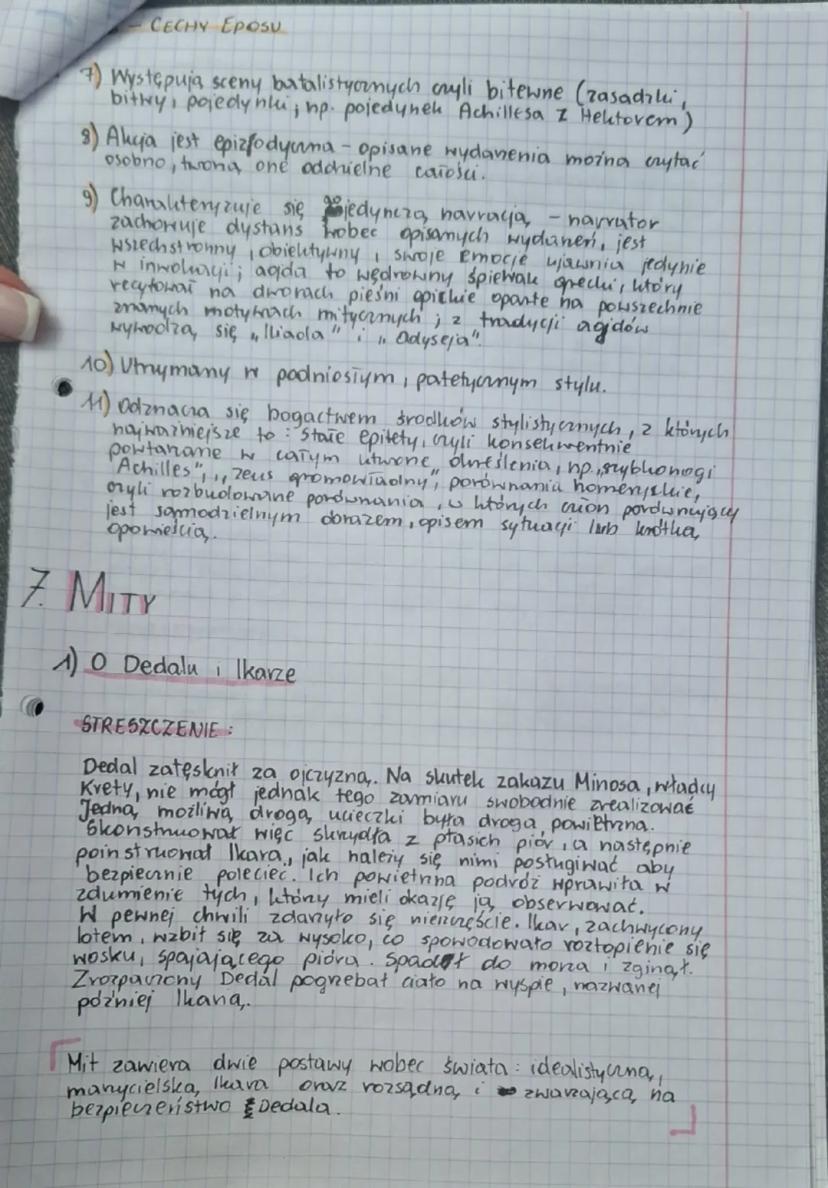 - CECHY EPOSU
7) Występują sceny batalistycznych czyli bitewne (zasadzki,
bitwy, pojedynki; np. pojedynek Achillesa z Hektorem)
8) Akcja jest epizodyczna - opisane wydarzenia można czytać
osobno, tworzą one oddzielne całości.
9) Charakteryzuje się pojedynczą narracją, - narrator
zachowuje dystans wobec opisanych wydarzeń, jest
wszechstronny, obiektywny, swoje emocje ujawnia jedynie
w inwokacji; aojda to wędrowny śpiewak grecki, który
recytował na dworach pieśni epickie oparte na powszechnie
znanych motywach mitycznych; z tradycji aojdów
wywodzą się „Iliada" i „Odyseja".
10) Utrzymany w podniosłym, patetycznym stylu.
11) Odznacza się bogactwem środków stylistycznych, z których
najważniejsze to: stałe epitety, czyli konsekwentnie
powtarzane w całym utworze określenia, np. „szybkonogi
Achilles", „Zeus gromowładny", porównania homeryckie,
czyli rozbudowane porównania, w których człon porównujący
jest samodzielnym obrazem, opisem sytuacji lub krótką
opowieścią.
7. MITY
1) O Dedalu i Ikarze
STRESZCZENIE:
Dedal zatęsknił za ojczyzną. Na skutek zakazu Minosa, władcy
Krety, nie mógł jednak tego zamiaru swobodnie zrealizować
Jedną możliwą drogą ucieczki była droga powietrzna.
Skonstruował więc skrzydła z ptasich piór, a następnie
poinstruował Ikara, jak należy się nimi posługiwać aby
bezpiecznie polecieć. Ich powietrzna podróż wprawiła w
zdumienie tych, którzy mieli okazję ją obserwować.
W pewnej chwili zdarzyło się nieszczęście. Ikar, zachwycony
lotem, wzbił się za wysoko, co spowodowało roztopienie się
wosku, spajającego pióra. Spadł do morza i zginął.
Zrozpaczony Dedal pogrzebał ciało na wyspie, nazwanej
później Ikarią.
Mit zawiera dwie postawy wobec świata: idealistyczną,
marzycielską Ikara oraz rozsądną i zwarzającą na
bezpieczeństwo Dedala.